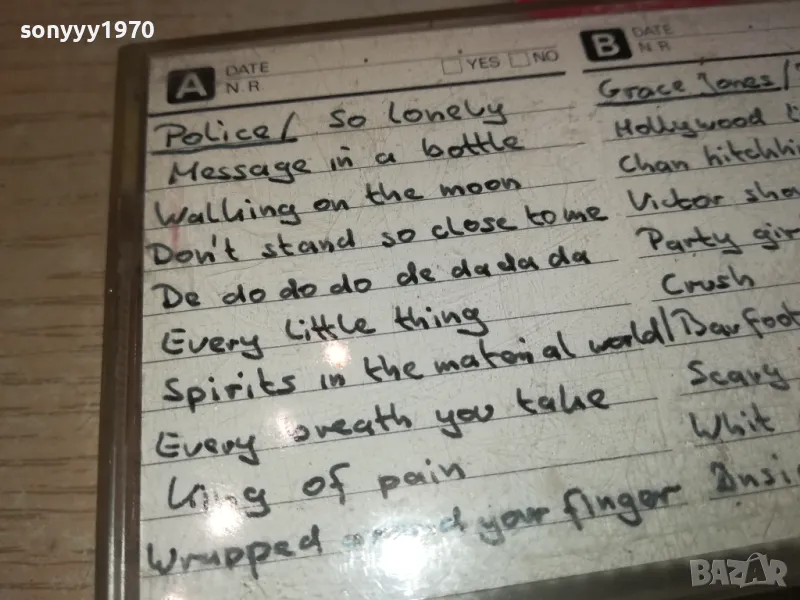 sonyyy1970
A DATE
N.R. YES NO
Police/ So lonely
Message in a bottle
Walking on the moon
Don't stand so close to me
De do do do de da da da
Every little thing
Spirits in the material world/
Every breath you take
King of pain
Wrapped around your finger
B DATE
N.R
Grace Jones/
Hollywood
Chan hitchhi
Victor sho
Party gir
Crush
Barfoot
Scary
Whit
Insi
BAZAR